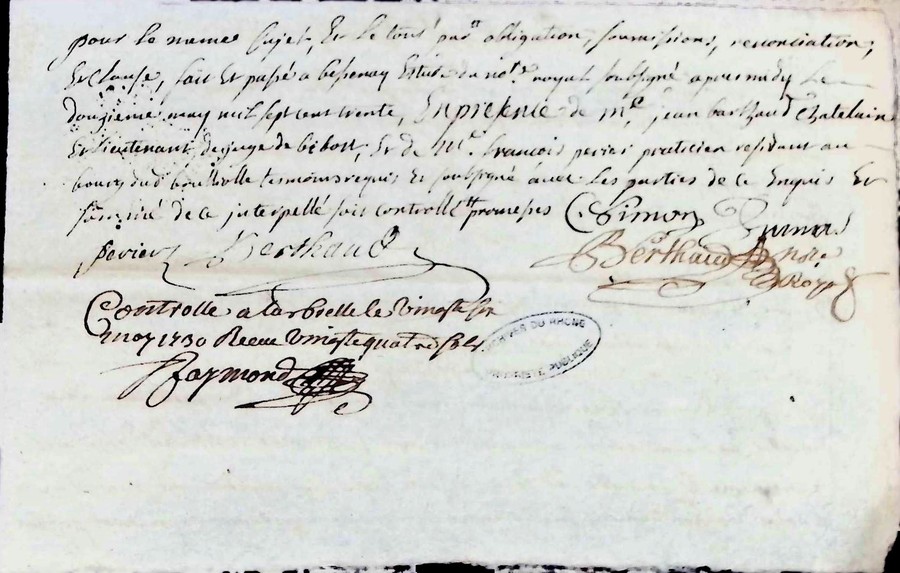 pour le meme sujet, Et le tout par obligation, soumissions, renonciation,
Et clause, fait Et passé a bessenay Estude du not.e royal soubsigné apres midy Le
douzieme may mil sept cent trente, En presence de m.e jean barthaud Chatelain
Et Lieutenant de juge de bibost, Et de m.e francois perier praticien residant au
bourg dud tesmoins requis Et soubsigné avec Les parties de ce Enquis Et
de ce interpellé sois controllé promesses C. Simon
perier Berthaud Berthaud Not.e Royal
Controlle a Larbrelle le vingt six
may 1730 Receu vingt quatre sols
Raymond
ARCHIVES DU RHONE
PROPRIETE PUBLIQUE